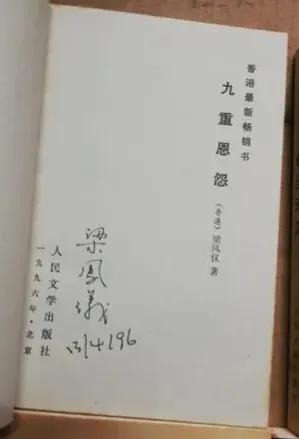 香港最新畅销书
九重恩怨
（香港）梁凤仪 著
梁鳳儀
人民文学出版社
一九九六年·北京